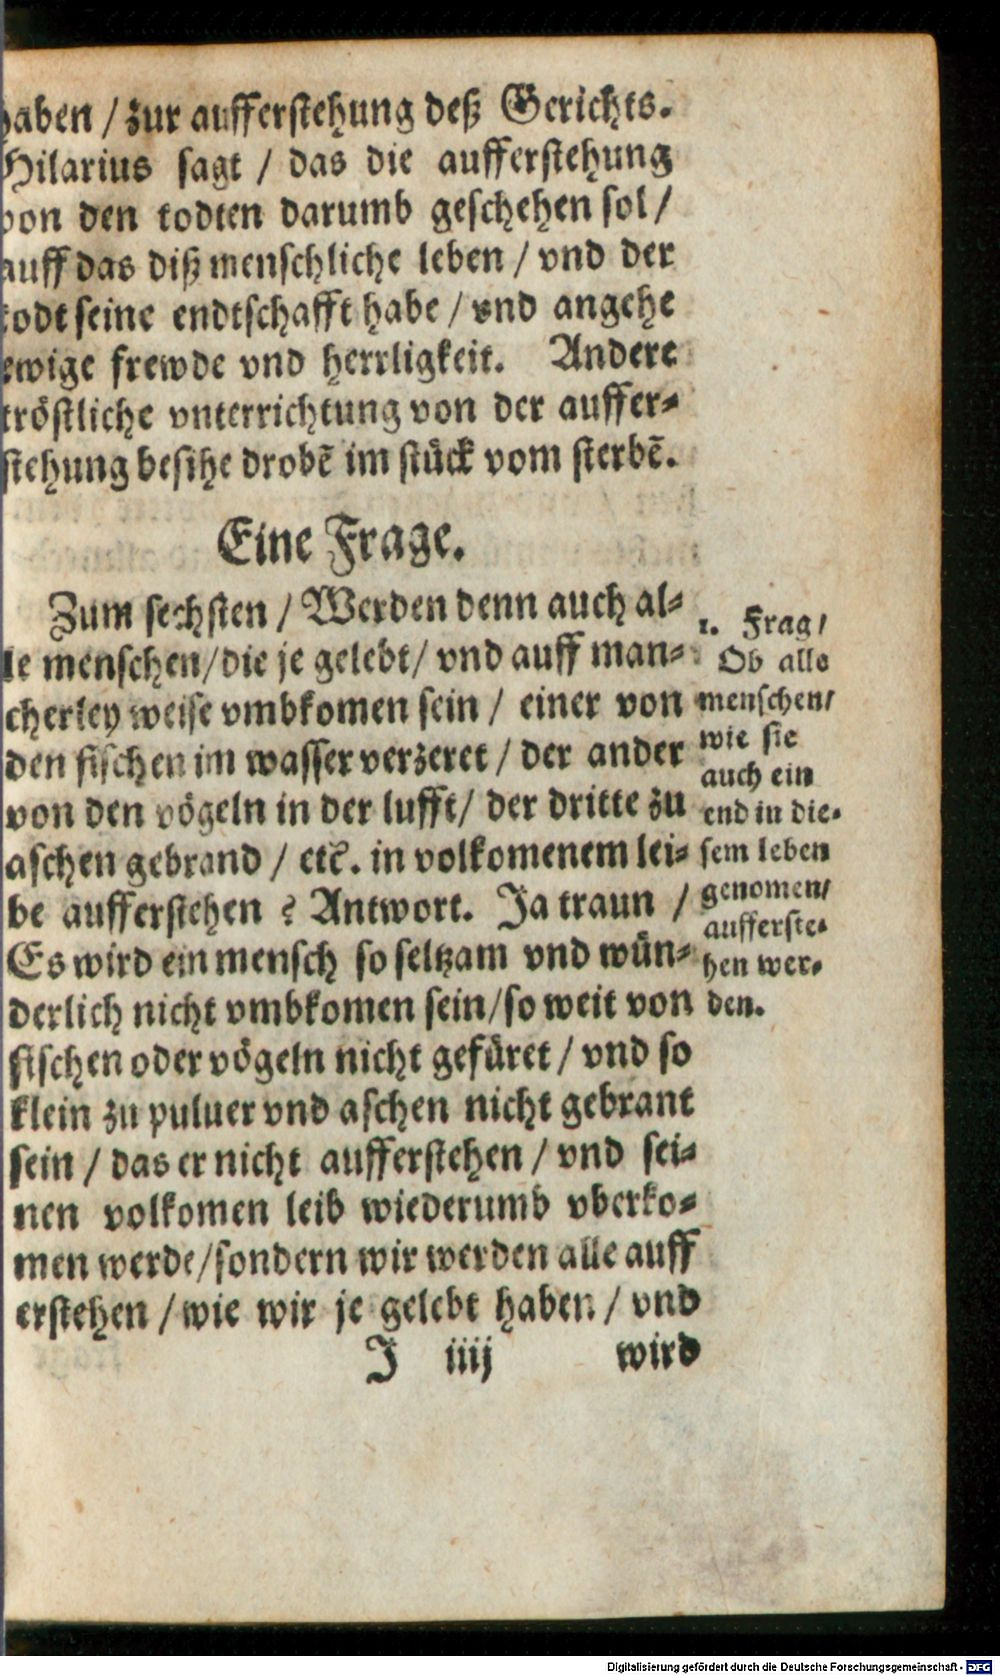 haben / zur aufferstehung deß Gerichts.
Hilarius sagt / das die aufferstehung
von den todten darumb geschehen sol /
auff das diß menschliche leben / vnd der
todt seine endtschafft habe / vnd angehe
ewige frewde vnd herrligkeit. Andere
tröstliche vnterrichtung von der auffer-
stehung besihe drobē im stück vom sterbē.
Eine Frage.
Zum sechsten / Werden denn auch al-
le menschen / die je gelebt / vnd auff man-
cherley weise vmbkomen sein / einer von
den fischen im wasser verzeret / der ander
von den vögeln in der lufft / der dritte zu
aschen gebrand / etc̄. in volkomenem lei-
be aufferstehen ? Antwort. Ja traun /
Es wird ein mensch so seltzam vnd wün-
derlich nicht vmbkomen sein / so weit von
fischen oder vögeln nicht gefüret / vnd so
klein zu puluer vnd aschen nicht gebrant
sein / das er nicht aufferstehen / vnd sei-
nen volkomen leib wiederumb vberko-
men werde / sondern wir werden alle auff
erstehen / wie wir je gelebt haben / vnd
J iiij wird
1. Frag /
Ob alle
menschen /
wie sie
auch ein
end in die-
sem leben
genomen /
aufferste-
hen wer-
den.
Digitalisierung gefördert durch die Deutsche Forschungsgemeinschaft - DFG